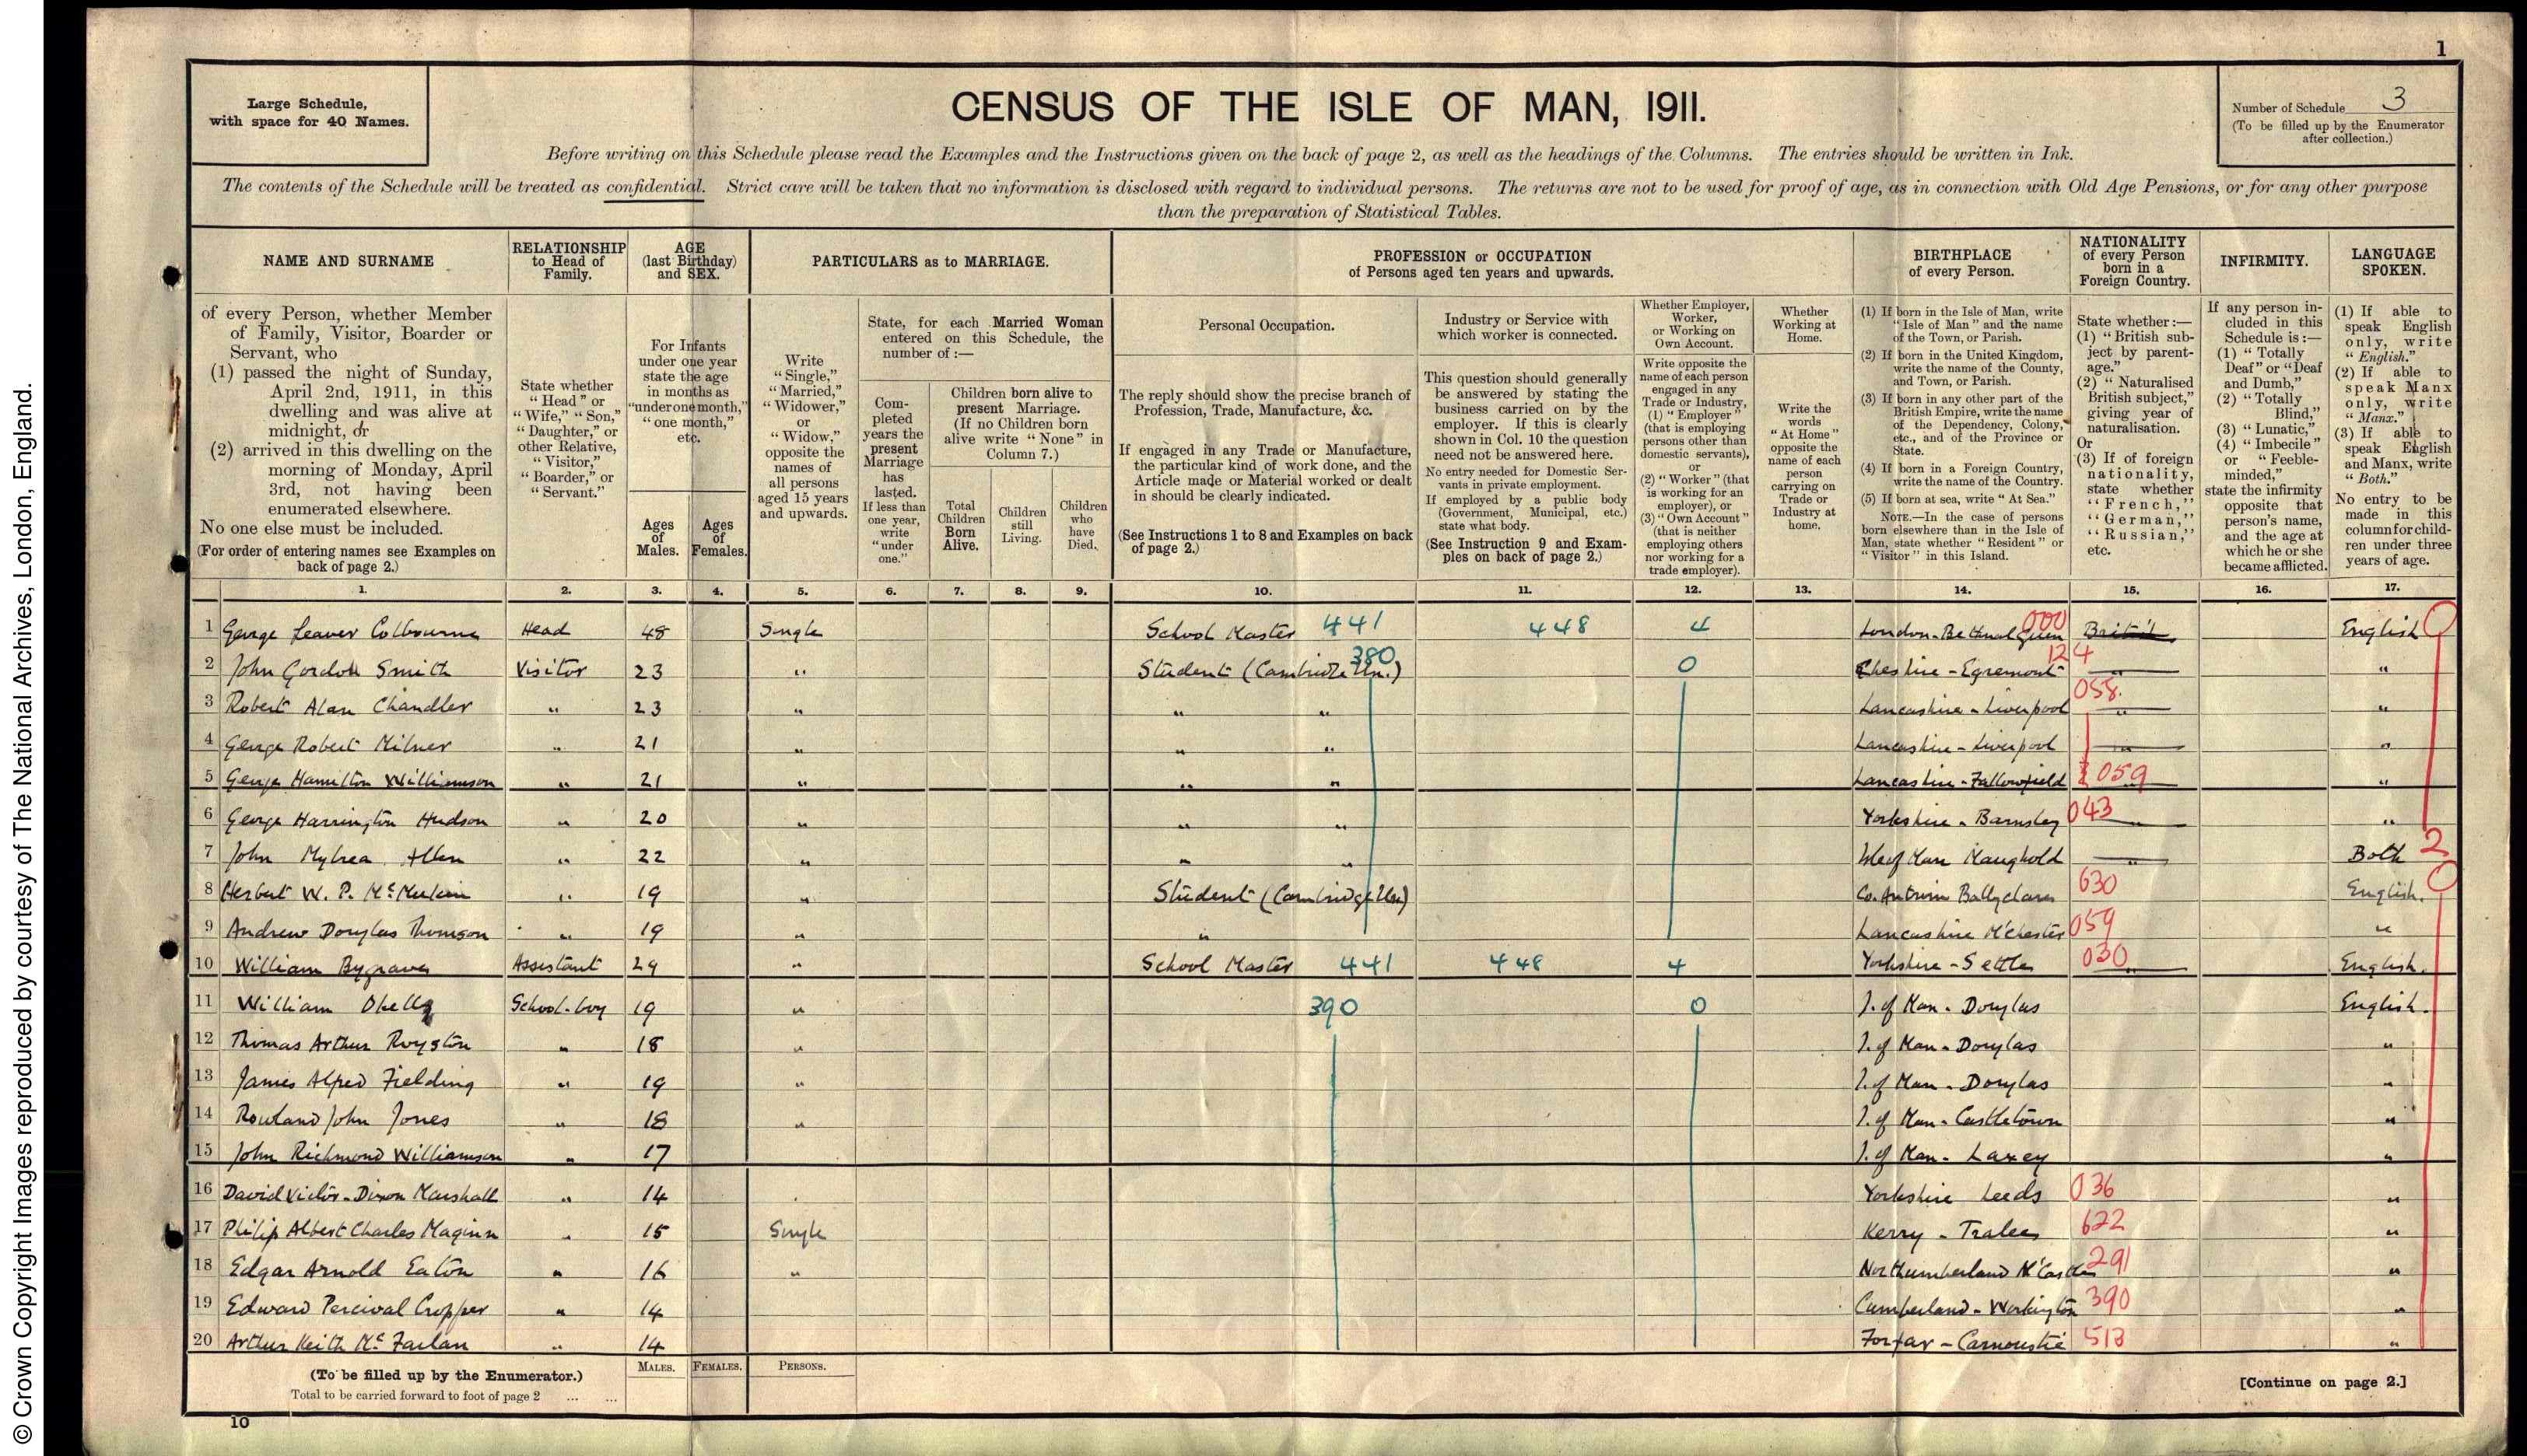 1
Large Schedule,
with space for 40 Names.
CENSUS OF THE ISLE OF MAN, 1911.
Number of Schedule 3
(To be filled up by the Enumerator
after collection.)
Before writing on this Schedule please read the Examples and the Instructions given on the back of page 2, as well as the headings of the Columns. The entries should be written in Ink.
The contents of the Schedule will be treated as confidential. Strict care will be taken that no information is disclosed with regard to individual persons. The returns are not to be used for proof of age, as in connection with Old Age Pensions, or for any other purpose
than the preparation of Statistical Tables.
NAME AND SURNAME
of every Person, whether Member
of Family, Visitor, Boarder or
Servant, who
(1) passed the night of Sunday,
April 2nd, 1911, in this
dwelling and was alive at
midnight, or
(2) arrived in this dwelling on the
morning of Monday, April
3rd, not having been
enumerated elsewhere.
No one else must be included.
(For order of entering names see Examples on
back of page 2.)
1.
RELATIONSHIP
to Head of
Family.
State whether
"Head" or
"Wife," "Son,"
"Daughter," or
other Relative,
"Visitor,"
"Boarder," or
"Servant."
2.
AGE
(last Birthday)
and SEX.
For Infants
under one year
state the age
in months as
"under one month,"
"one month,"
etc.
Ages
of
Males.
3.
Ages
of
Females.
4.
PARTICULARS as to MARRIAGE.
Write
"Single,"
"Married,"
"Widower,"
or
"Widow,"
opposite the
names of
all persons
aged 15 years
and upwards.
5.
State, for each Married Woman
entered on this Schedule, the
number of :—
Com-
pleted
years the
present
Marriage
has
lasted.
If less than
one year,
write
"under
one."
6.
Children born alive to
present Marriage.
(If no Children born
alive write "None" in
Column 7.)
Total
Children
Born
Alive.
7.
Children
still
Living.
8.
Children
who
have
Died.
9.
PROFESSION or OCCUPATION
of Persons aged ten years and upwards.
Personal Occupation.
The reply should show the precise branch of
Profession, Trade, Manufacture, &c.
If engaged in any Trade or Manufacture,
the particular kind of work done, and the
Article made or Material worked or dealt
in should be clearly indicated.
(See Instructions 1 to 8 and Examples on back
of page 2.)
10.
Industry or Service with
which worker is connected.
This question should generally
be answered by stating the
business carried on by the
employer. If this is clearly
shown in Col. 10 the question
need not be answered here.
No entry needed for Domestic Ser-
vants in private employment.
If employed by a public body
(Government, Municipal, etc.)
state what body.
(See Instruction 9 and Exam-
ples on back of page 2.)
11.
Whether Employer,
Worker,
or Working on
Own Account.
Write opposite the
name of each person
engaged in any
Trade or Industry,
(1) "Employer"
(that is employing
persons other than
domestic servants),
or
(2) "Worker" (that
is working for an
employer), or
(3) "Own Account"
(that is neither
employing others
nor working for a
trade employer).
12.
Whether
Working at
Home.
Write the
words
"At Home"
opposite the
name of each
person
carrying on
Trade or
Industry at
home.
13.
BIRTHPLACE
of every Person.
(1) If born in the Isle of Man, write
"Isle of Man" and the name
of the Town, or Parish.
(2) If born in the United Kingdom,
write the name of the County,
and Town, or Parish.
(3) If born in any other part of the
British Empire, write the name
of the Dependency, Colony,
etc., and of the Province or
State.
(4) If born in a Foreign Country,
write the name of the Country.
(5) If born at sea, write "At Sea."
NOTE.—In the case of persons
born elsewhere than in the Isle of
Man, state whether "Resident" or
"Visitor" in this Island.
14.
NATIONALITY
of every Person
born in a
Foreign Country.
State whether :—
(1) "British sub-
ject by parent-
age."
(2) "Naturalised
British subject,"
giving year of
naturalisation.
Or
(3) If of foreign
nationality,
state whether
"French,"
"German,"
"Russian,"
etc.
15.
INFIRMITY.
If any person in-
cluded in this
Schedule is :—
(1) "Totally
Deaf" or "Deaf
and Dumb,"
(2) "Totally
Blind,"
(3) "Lunatic,"
(4) "Imbecile"
or "Feeble-
minded,"
state the infirmity
opposite that
person's name,
and the age at
which he or she
became afflicted.
16.
LANGUAGE
SPOKEN.
(1) If able to
speak English
only, write
"English."
(2) If able to
speak Manx
only, write
"Manx."
(3) If able to
speak English
and Manx, write
"Both."
No entry to be
made in this
column for child-
ren under three
years of age.
17.
1 George Leaver Colbourne Head 48 Single School Master 441 448 4 London - Bethnal Green 000 British English 0
2 John Gordon Smith Visitor 23 " Student (Cambridge Un.) 380 0 Cheshire - Egremont 124 "
3 Robert Alan Chandler " 23 " " " Lancashire - Liverpool 058 " "
4 George Robert Milner " 21 " " " Lancashire - Liverpool " "
5 George Hamilton Williamson " 21 " " " Lancashire - Fallowfield 059 "
6 George Harrington Hudson " 20 " " " Yorkshire - Barnsley 043 " "
7 John Mylrea Allen " 22 " " " Isle of Man Maughold " Both 2
8 Herbert W. P. " 19 " Student (Cambridge Un) Co. Antrim Ballyclare 630 English. 0
9 Andrew Douglas Thomson " 19 " " Lancashire M'chester 059 "
10 William Bygrave Assistant 29 " School Master 441 448 4 Yorkshire - Settle 030 " English.
11 William Okell School-boy 19 " 390 0 I. of Man - Douglas English.
12 Thomas Arthur Royston " 18 " I. of Man - Douglas "
13 James Alfred Fielding " 19 " I. of Man - Douglas "
14 Rowland John Jones " 18 " I. of Man - Castletown "
15 John Richmond Williamson " 17 I. of Man - Laxey "
16 David Victor - Dixon Marshall " 14 Yorkshire Leeds 036 "
17 Philip Albert Charles Maginn " 15 Single Kerry - Tralee 622 "
18 Edgar Arnold Eaton " 16 " Northumberland N'Castle 291 "
19 Edward Percival Cropper " 14 Cumberland - Workington 390 "
20 Arthur Keith McFarlan " 14 Forfar - Carnoustie 513 "
(To be filled up by the Enumerator.)
Total to be carried forward to foot of page 2 ... ...
MALES. FEMALES. PERSONS.
[Continue on page 2.]
10
© Crown Copyright Images reproduced by courtesy of The National Archives, London, England.